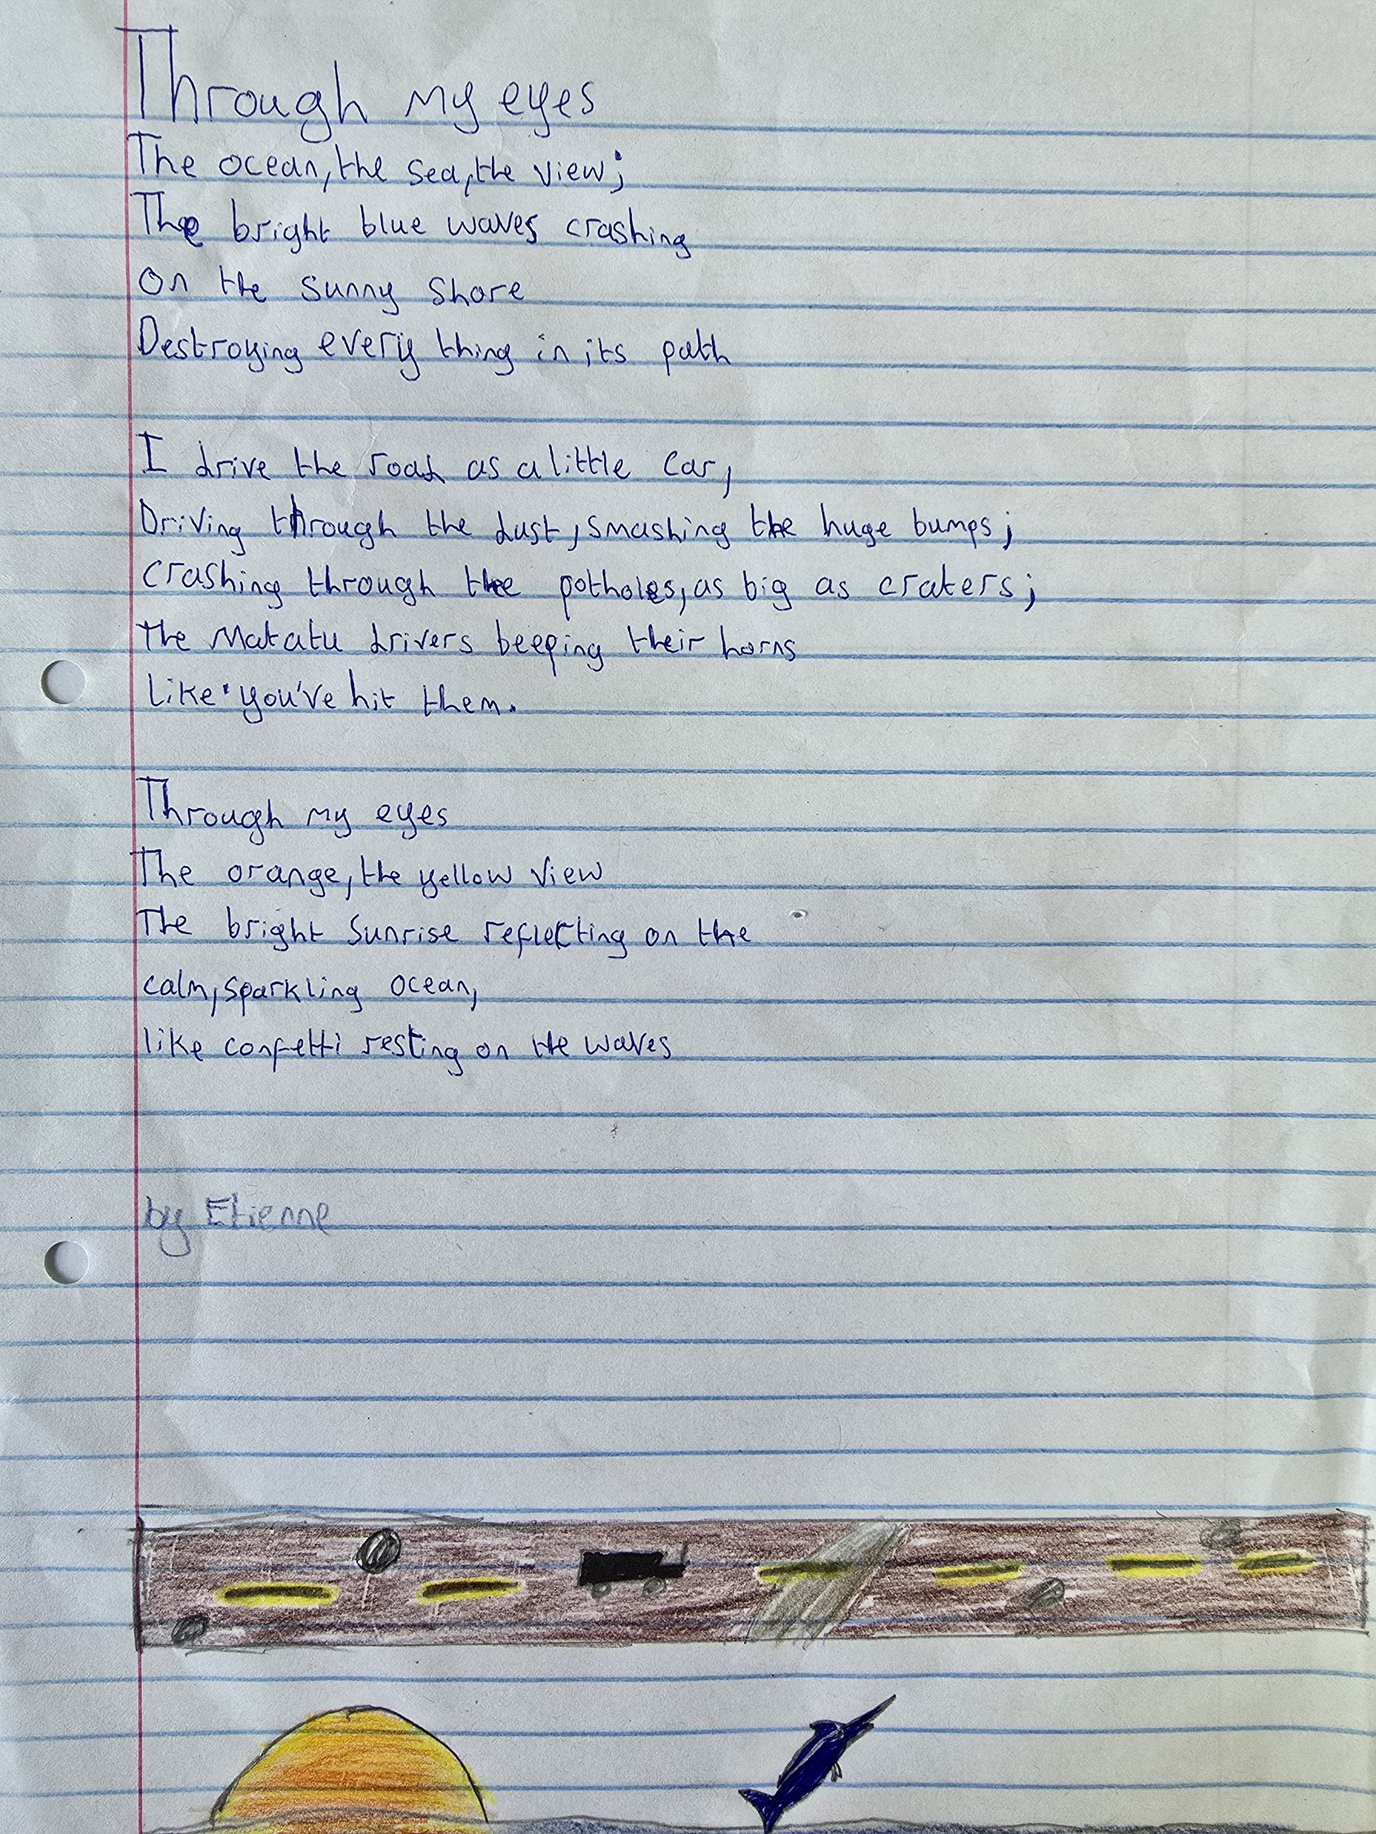 Through my eyes
The ocean, the sea, the view;
The bright blue waves crashing
on the sunny shore
Destroying every thing in its path
I drive the road as a little car,
Driving through the dust, smashing the huge bumps;
crashing through the potholes, as big as craters;
The Matatu drivers beeping their horns
like you've hit them.
Through my eyes
The orange, the yellow view
The bright sunrise reflecting on the
calm, sparkling ocean,
like confetti resting on the waves
by Etienne